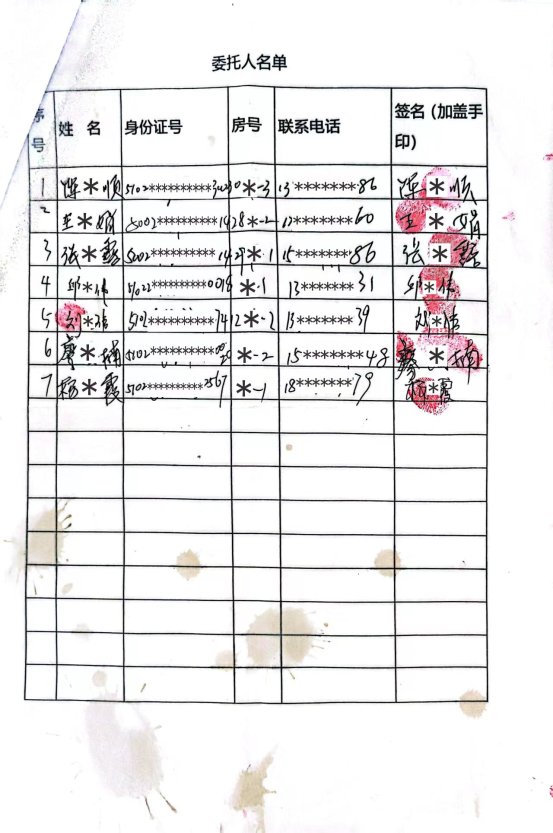 委托人名单
序号 姓 名 身份证号 房号 联系电话 签名（加盖手印）
1 陈*顺 5102**********30 *-3 13*******86 陈*顺
2 王*娟 5002**********1428 *-2 60 王*娟
3 张* 5002**********14 *-1 15*******86 张*
4 邱*伟 51022**********0018 *-1 13*******31 邱*伟
5 刘*信 5102**********74 2*-2 13*******39 刘*信
6 *楠 5102********** *-2 15*******48 *楠
7 杨*霞 5102*********2567 *-1 18*******79 杨*霞